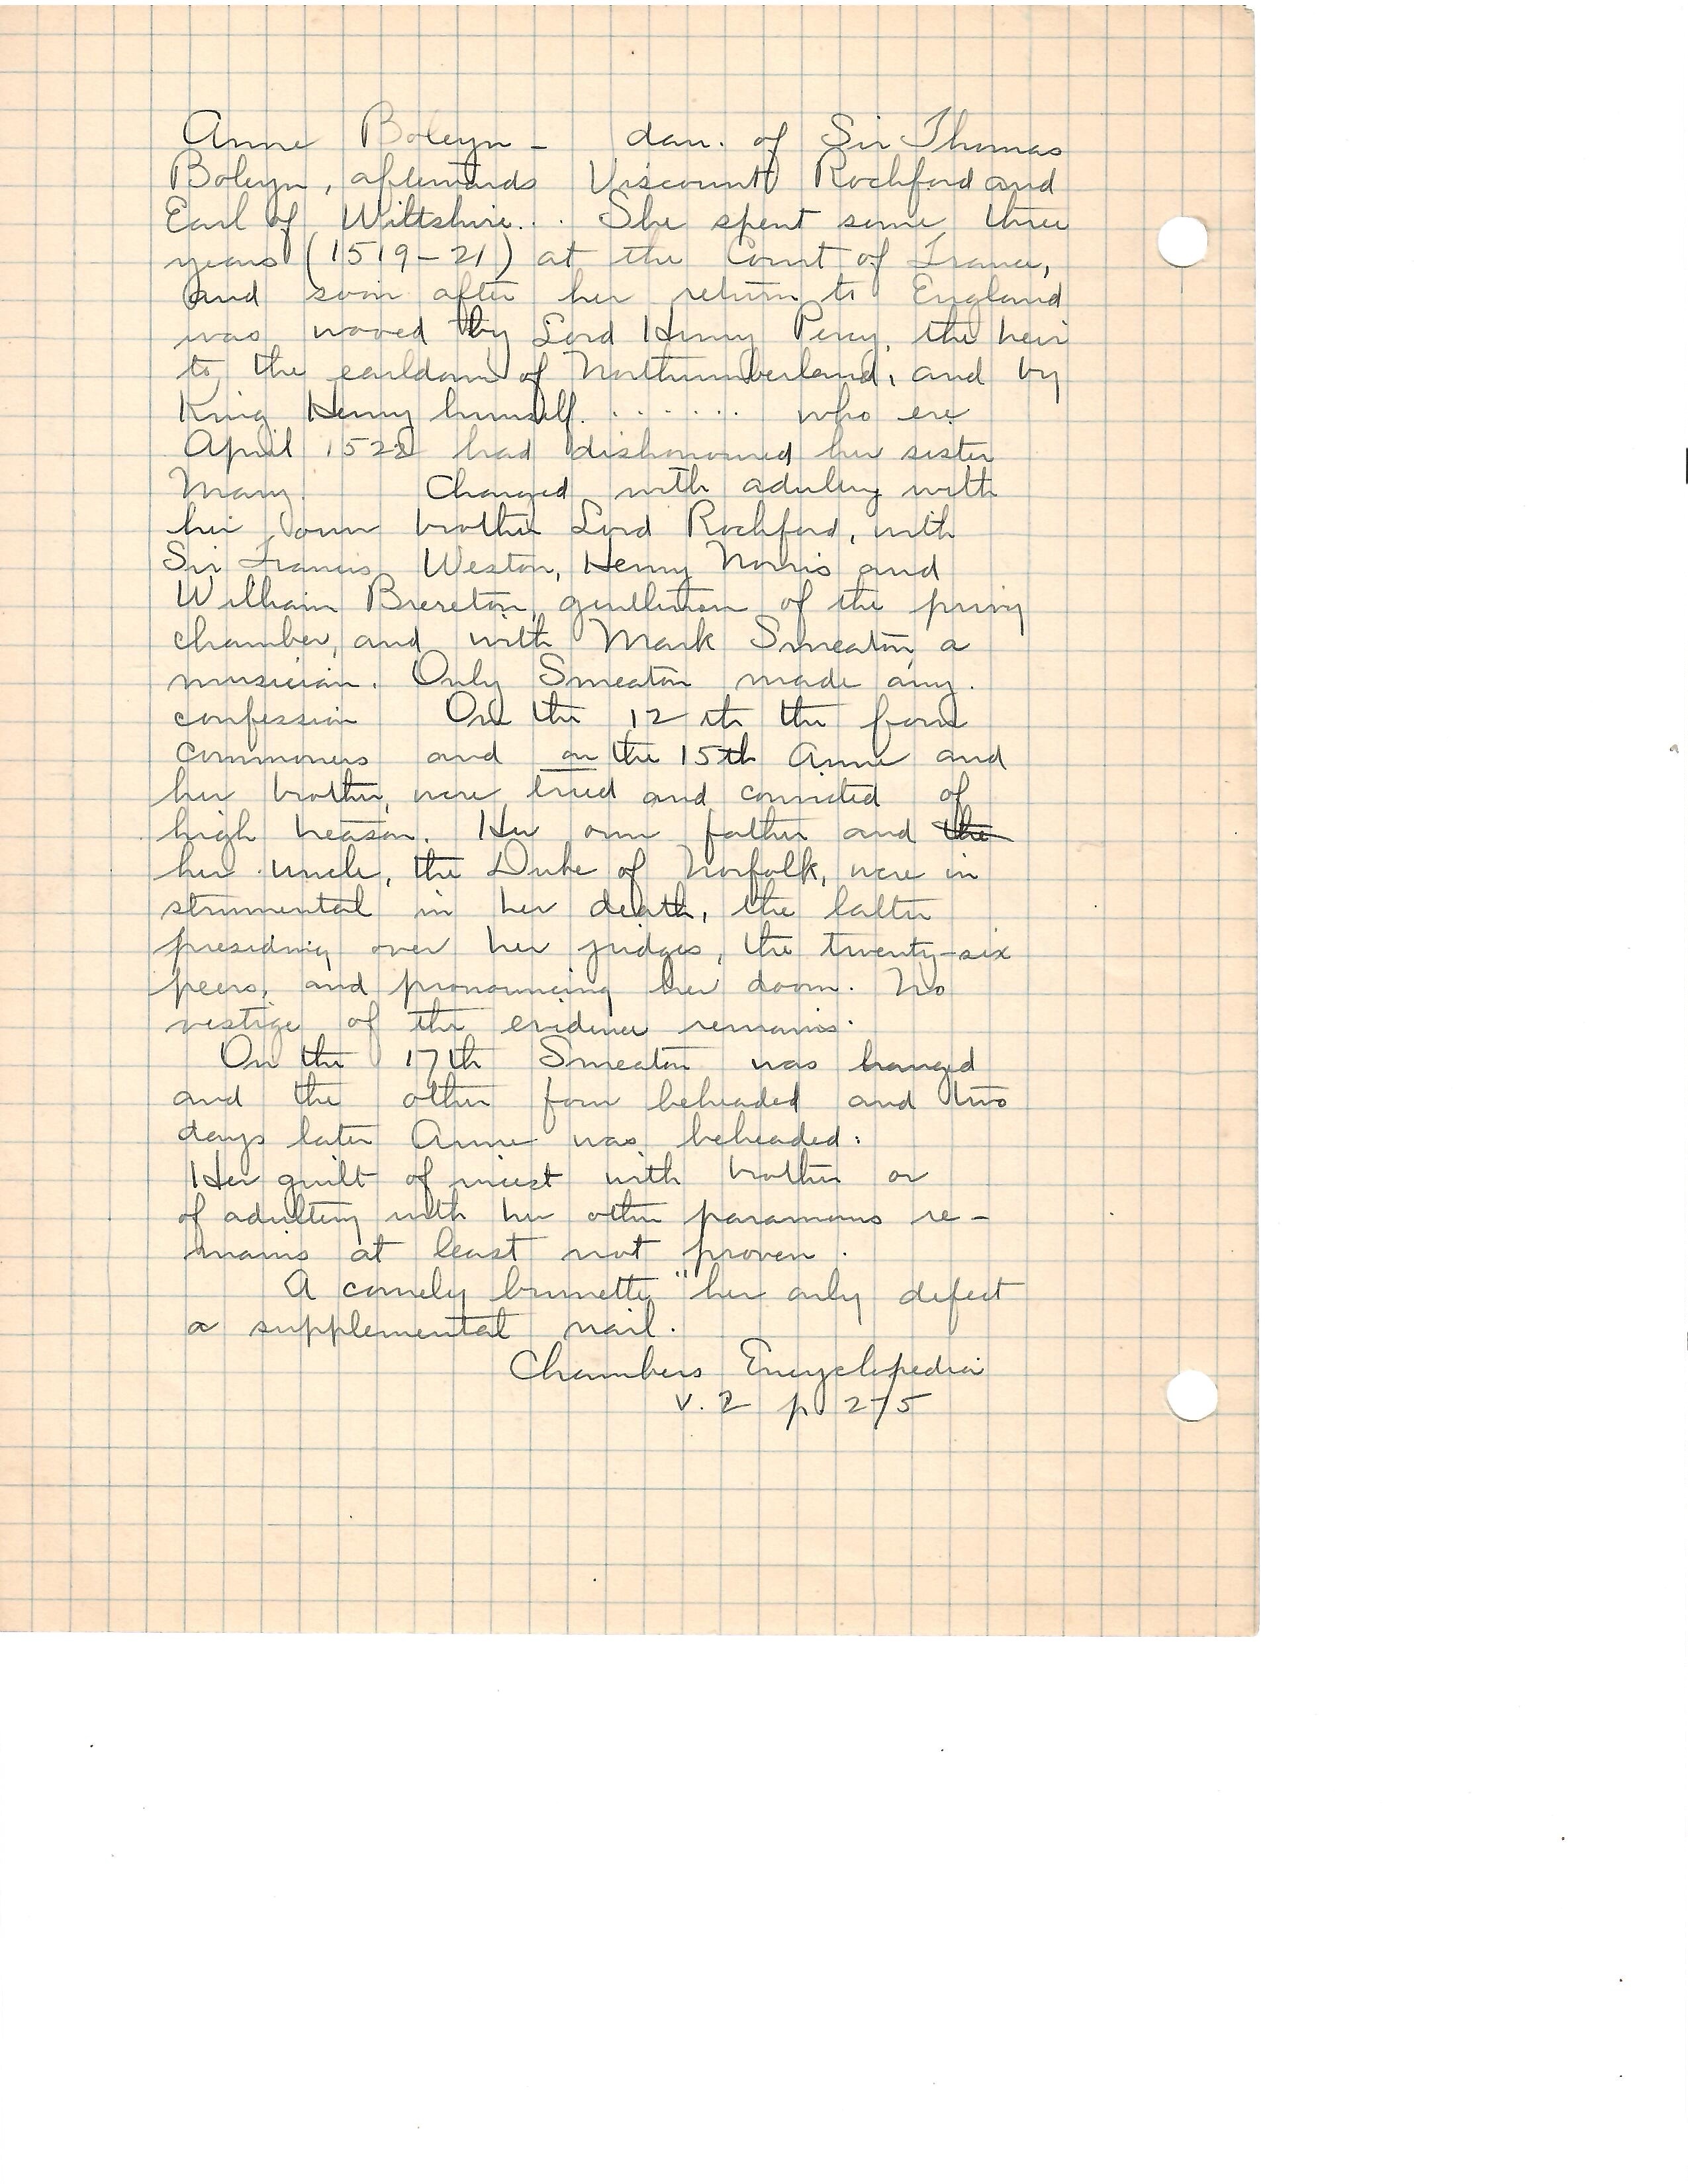 Anne Boleyn - dau. of Sir Thomas
Boleyn, afterwards Viscount Rochford and
Earl of Wiltshire... She spent some three
years (1519-21) at the Court of France,
and soon after her return to England
was wooed by Lord Henry Percy, the heir
to the earldom of Northumberland, and by
King Henry himself. ...... who ere
April 1522 had dishonoured her sister
Mary. Charged with adultery with
her own brother Lord Rochford, with
Sir Francis Weston, Henry Norris and
William Brereton, gentlemen of the privy
chamber, and with Mark Smeaton, a
musician. Only Smeaton made any.
confession On the 12th the four
commoners and on the 15th Anne and
her brother, were tried and convicted of
high treason. Her own father and the
her uncle, the Duke of Norfolk, were in
strumental in her death, the latter
presiding over her judges, the twenty-six
peers, and pronouncing her doom. No
vestige of the evidence remains.
On the 17th Smeaton was hanged
and the other four beheaded and two
days later Anne was beheaded.
Her guilt of incest with brother or
of adultery with her other paramours re-
mains at least not proven.
A comely brunette "her only defect
a supplemental nail.
Chambers Encyclopedia
v. 2 p 275